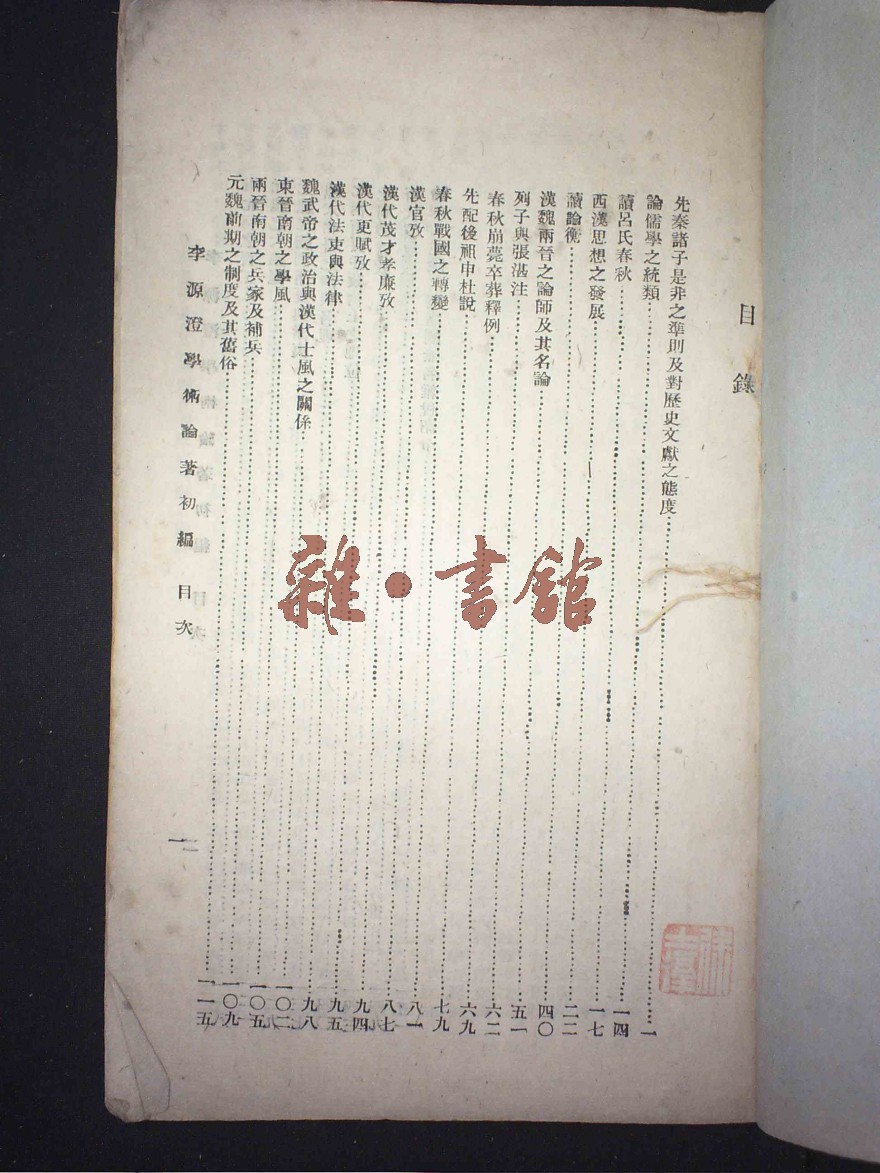 目錄
先秦諸子是非之準則及對歷史文獻之態度……一
論儒學之統類……一四
讀呂氏春秋……一七
西漢思想之發展……二二
讀論衡……四〇
漢魏兩晉之論師及其名論……五一
列子與張湛注……六二
春秋崩薨卒葬釋例……六九
先配後祖申杜說……七九
春秋戰國之轉變……八一
漢官攷……八七
漢代茂才孝廉攷……九四
漢代更賦攷……九五
漢代法吏與法律……九八
魏武帝之政治與漢代士風之關係……一〇二
東晉南朝之學風……一〇五
兩晉南朝之兵家及補兵……一〇九
元魏前期之制度及其舊俗……一一五
李源澄學術論著初編 目次
一
雜·書館